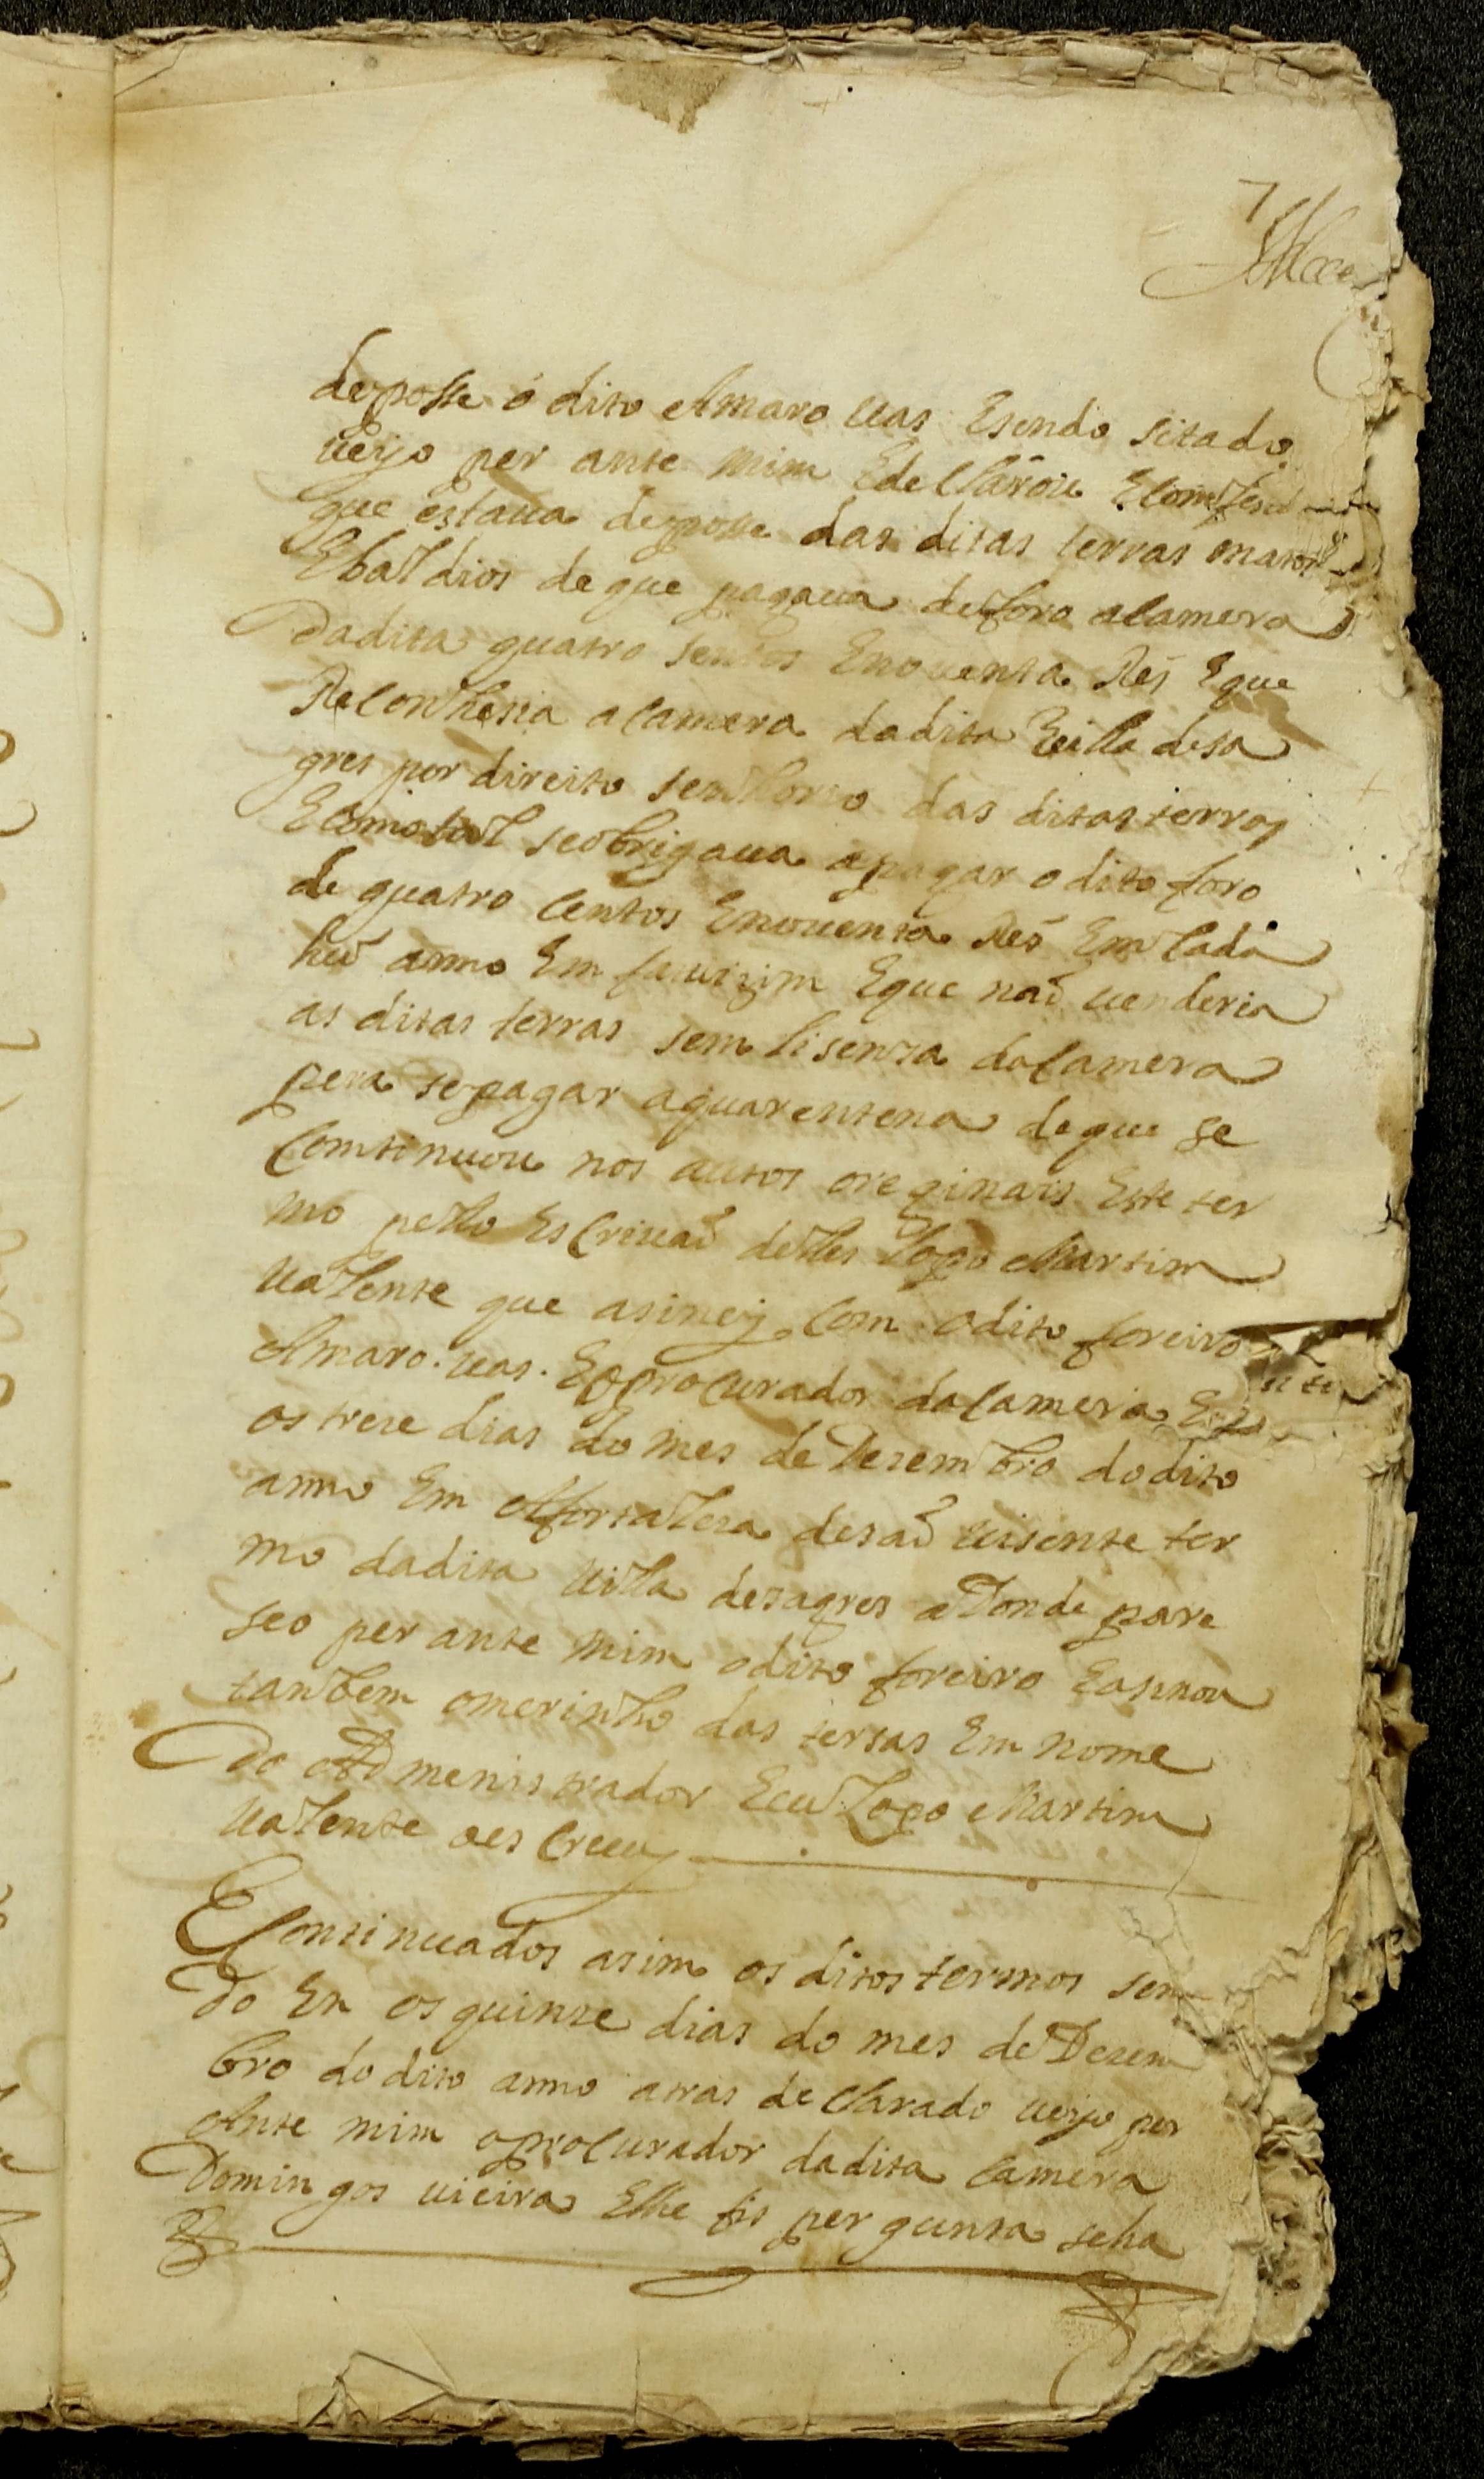 7
deposse o dito Amaro uas Esendo sitado
ueyo per ante mim Ede Clarou E
que estaua deposse das ditas terras matos
Ebaldios de que pagaua de foro a Camera
dadita quatro sentos Enouenta Res Eque
Reconhesia a Camera dadita Villa desa
gres por direito senhorio das ditas terras
E Comotal seobrigaua apagar o dito foro
de quatro Centos Enouenta Res Em Cada
hũ anno Em fatiozim Eque naõ uenderia
as ditas terras sem lisensa da Camera
pera sepagar aquarentena de que se
Comtinuou nos autos oreginais Este ter
mo pello Es Criuaõ delles Lopo Martim
ualente que asiney Com odito foreiro
Amaro. uas. Eo procurador da Camera
os treze dias do mes de Dezembro dodito
anno Em Afortaleza desaõ uisente ter
mo dadita Villa desagres a Donde pare
seo per ante mim odito foreiro Easinou
tanbem omerinho das tersas Em nome
do Admenistrador Eeu Lopo Martim
ualente oes Creuy
E Continuados asim os ditos termos sen
do En os quinze dias do mes de Dezem
bro do dito anno atras de Clarado ueyo per
Ante mim o procurador dadita Camera
Domingos uieira Elhe fis per gunta seha